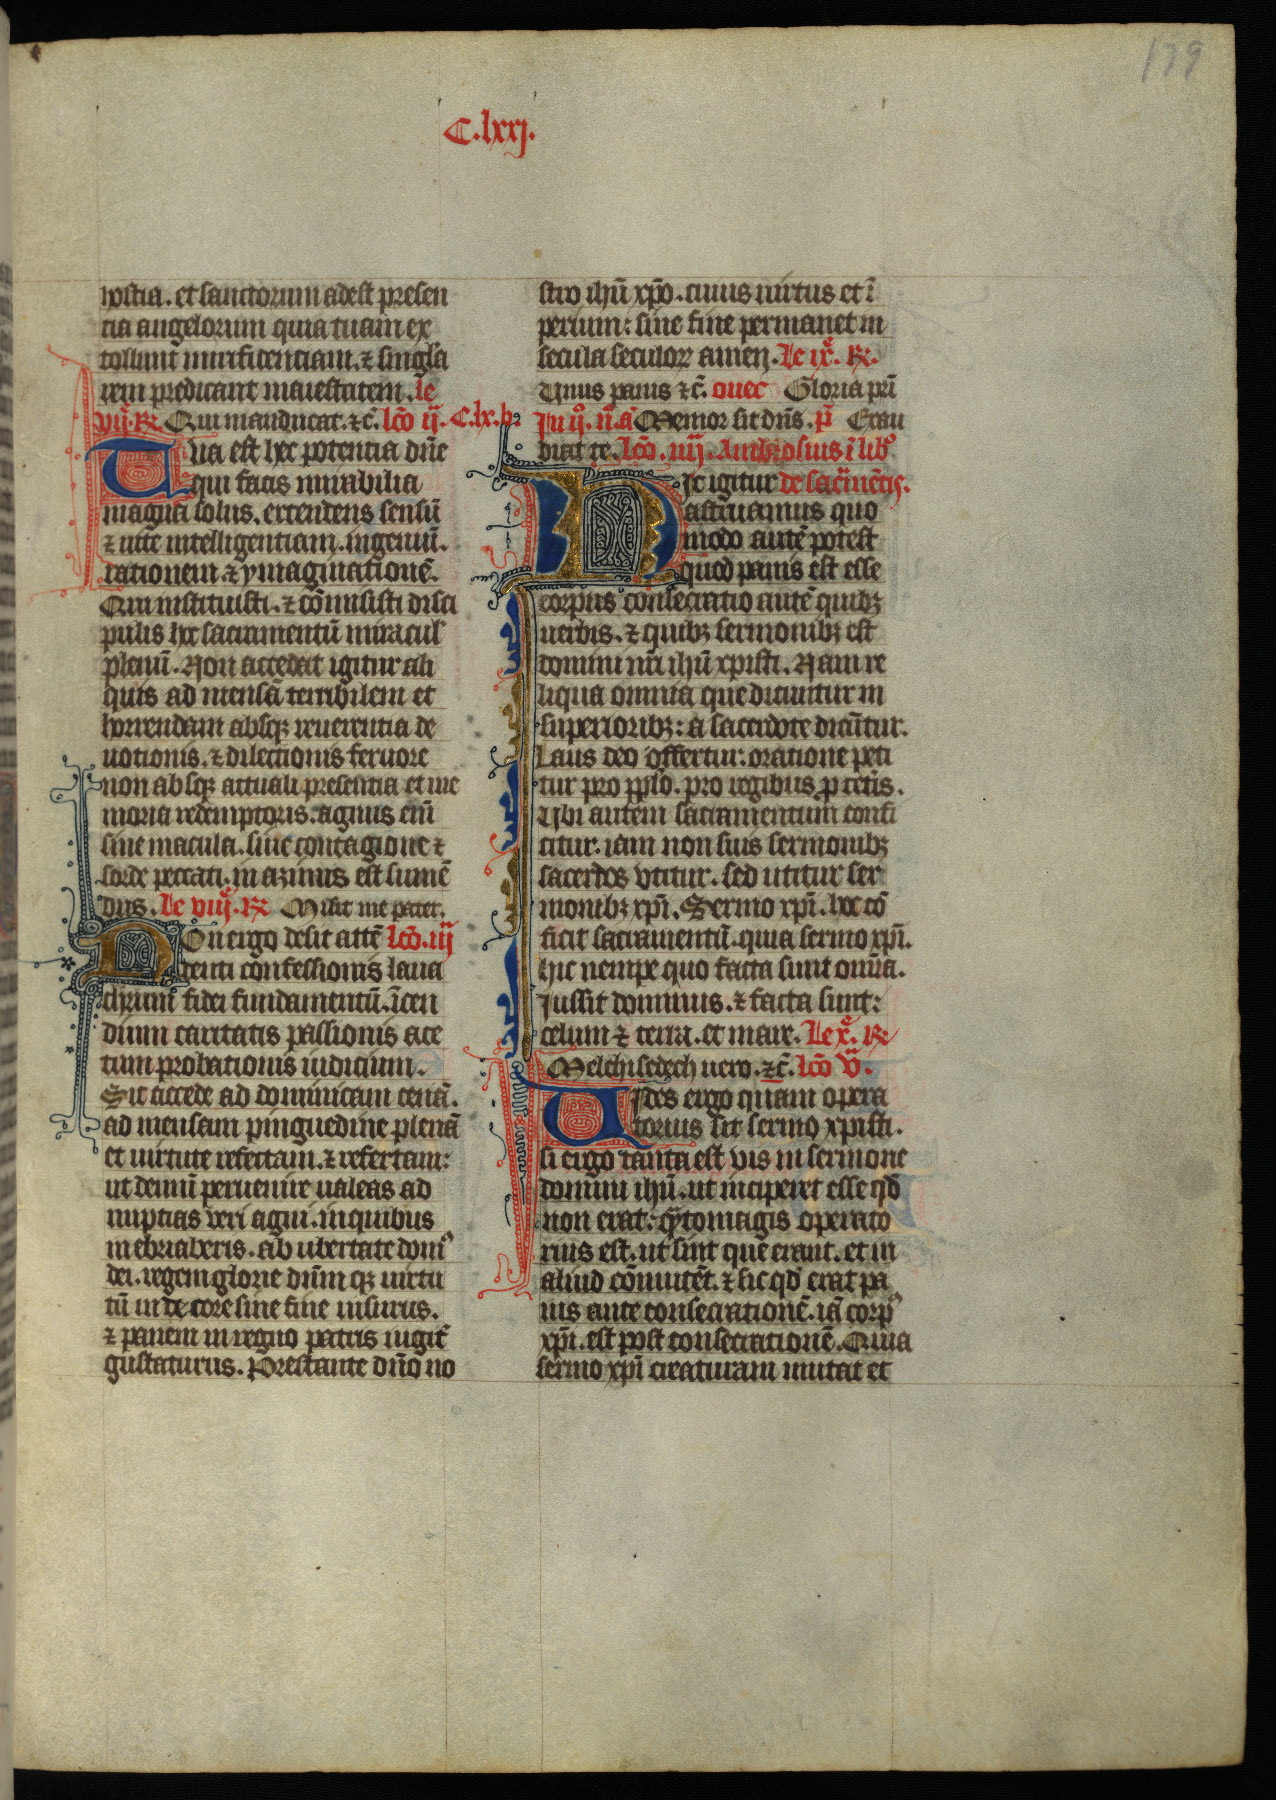 139
C.lxxj.
hostia. et sanctorum adest presen
tia angelorum quia tuam ex
tollunt mirificentiam. ⁊ singla
rem predicant maiestatem. le
vijͤ. R. Qui manducat. ⁊c̄. lcō ij. C.lx.b
Tua est hec potentia dn̄e
qui facis mirabilia
magna solus. excendens sensū
⁊ intelligentiam. ingeniū.
rationem ⁊ ymaginationē.
Qui instituisti. ⁊ cōmisisti disci
pulis hoc sacramentū miracul'
plenū. Non accedat igitur ali
quis ad mensā terribilem et
horrendam absqꝫ reuerentia de
uotionis. ⁊ dilectionis feruore
non absqꝫ actuali presentia et me
moria redemptoris. agnus enī
sine macula. sine contagione ⁊
sorde peccati. in azimis est sumē
dus. Le viijͤ. R Misit me pater.
Non ergo desit attē lcō. iij
tenti confessionis laua
chrum fidei fundamentū. īcen
dium caritatis passionis ace
tum probationis iudicium.
Sic accede ad dominicam cenā.
ad mensam pinguedine plenā
et uirtute refectam. ⁊ refertam:
ut demū peruenire ualeas ad
nuptias veri agni. in quibus
inebriaberis. ab ubertate domꝰ
dei. regem glorie dn̄m qꝫ uirtu
tū in decore sine fine uisurus.
⁊ panem in regno patris iugit̄
gustaturus. Prestante dn̄o no
stro ihū xp̄o. cuius uirtus et ī
perium: sine fine permanet in
secula seculoꝝ amen. Le ixͤ. R.
Unus panis ⁊c̄. ouec Gloria pri
In ijͦ. n̄. ā Memor sit dn̄s. p̄ Exau
diat te. lcō. iiij. Ambrosius ī libͦ
Hic igitur de sacͣmētis.
astruamus quo
modo autē potest
quod panis est esse
corpus consecratio autē quibꝫ
uerbis. ⁊ quibꝫ sermonibꝫ est
domini nr̄i ihū xpisti. Nam re
liqua omnia que dicuntur in
superioribꝫ: a sacerdote dicūtur.
Laus deo offertur: oratione peti
tur pro pplo. pro regibus ꝑ cetīs.
Ubi autem sacramentum confi
citur. iam non suis sermonibꝫ
sacerdos vtitur. sed utitur ser
monibꝫ xp̄i. Sermo xp̄i. hoc cō
ficit sacramentū. quia sermo xp̄i.
hic nempe quo facta sunt omīa.
Iussit dominus. ⁊ facta sunt:
celum ⁊ terra. et mare. Le xͤ. R
Melchisedech uero. ⁊c̄. lcō v̄.
Uides ergo quam opera
torius sit sermo xpisti.
si ergo tanta est vis in sermone
domini ihū. ut inciperet esse qd̄
non erat: qͣntomagis operato
rius est. ut sint que erant. et in
aliud cōmutēt. ⁊ sic qd̄ erat pa
nis ante consecrationē. iā corpꝰ
xp̄i. est post consecrationē. Quia
sermo xp̄i creaturam mutat et